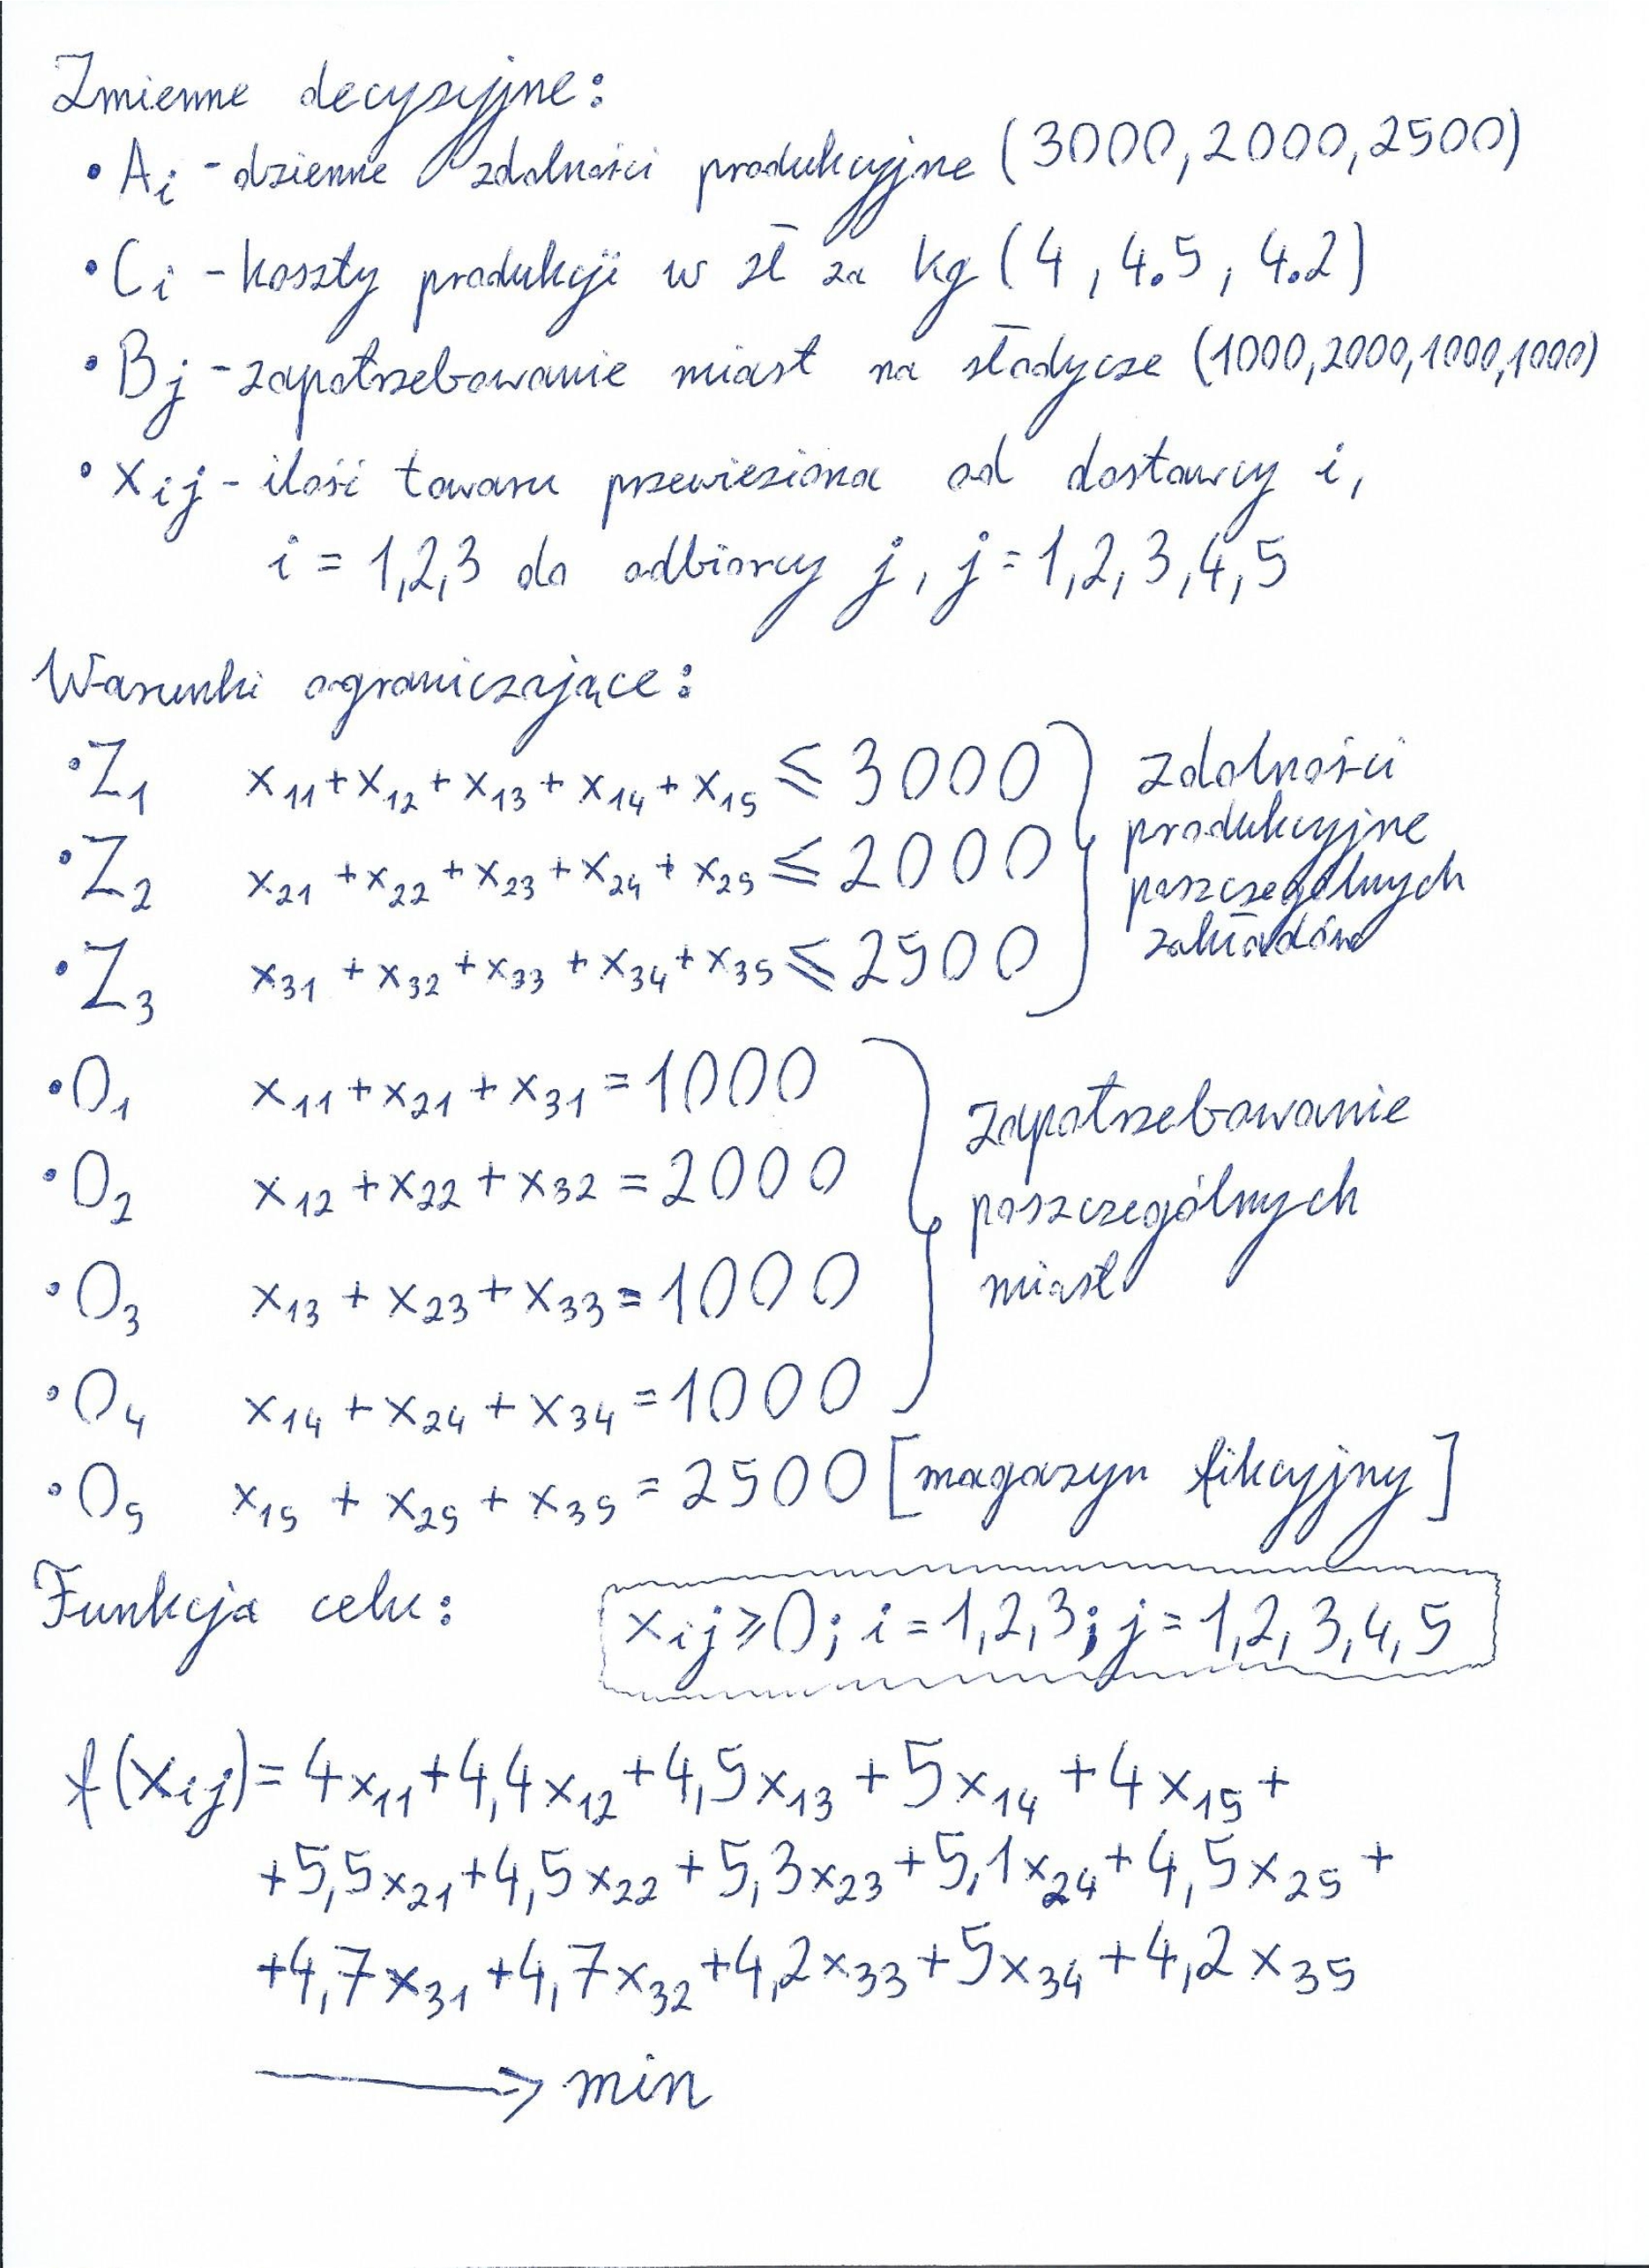 Zmienne decyzyjne:
• Ai - dzienne zdolności produkcyjne (3000, 2000, 2500)
• Ci - koszty produkcji w zł za kg (4, 4.5, 4.2)
• Bj - zapotrzebowanie miast na słodycze (1000, 2000, 1000, 1000)
• xij - ilość towaru przewieziona od dostawcy i,
i = 1,2,3 do odbiorcy j, j = 1,2,3,4,5
Warunki ograniczające:
• Z1 x11 + x12 + x13 + x14 + x15 ≤ 3000
• Z2 x21 + x22 + x23 + x24 + x25 ≤ 2000
• Z3 x31 + x32 + x33 + x34 + x35 ≤ 2500
zdolności
produkcyjne
poszczególnych
zakładów
• O1 x11 + x21 + x31 = 1000
• O2 x12 + x22 + x32 = 2000
• O3 x13 + x23 + x33 = 1000
• O4 x14 + x24 + x34 = 1000
zapotrzebowanie
poszczególnych
miast
• O5 x15 + x25 + x35 = 2500 [magazyn fikcyjny]
Funkcja celu:
xij ≥ 0; i = 1,2,3; j = 1,2,3,4,5
f(xij) = 4x11 + 4,4x12 + 4,5x13 + 5x14 + 4x15 +
+ 5,5x21 + 4,5x22 + 5,3x23 + 5,1x24 + 4,5x25 +
+ 4,7x31 + 4,7x32 + 4,2x33 + 5x34 + 4,2x35
→ min